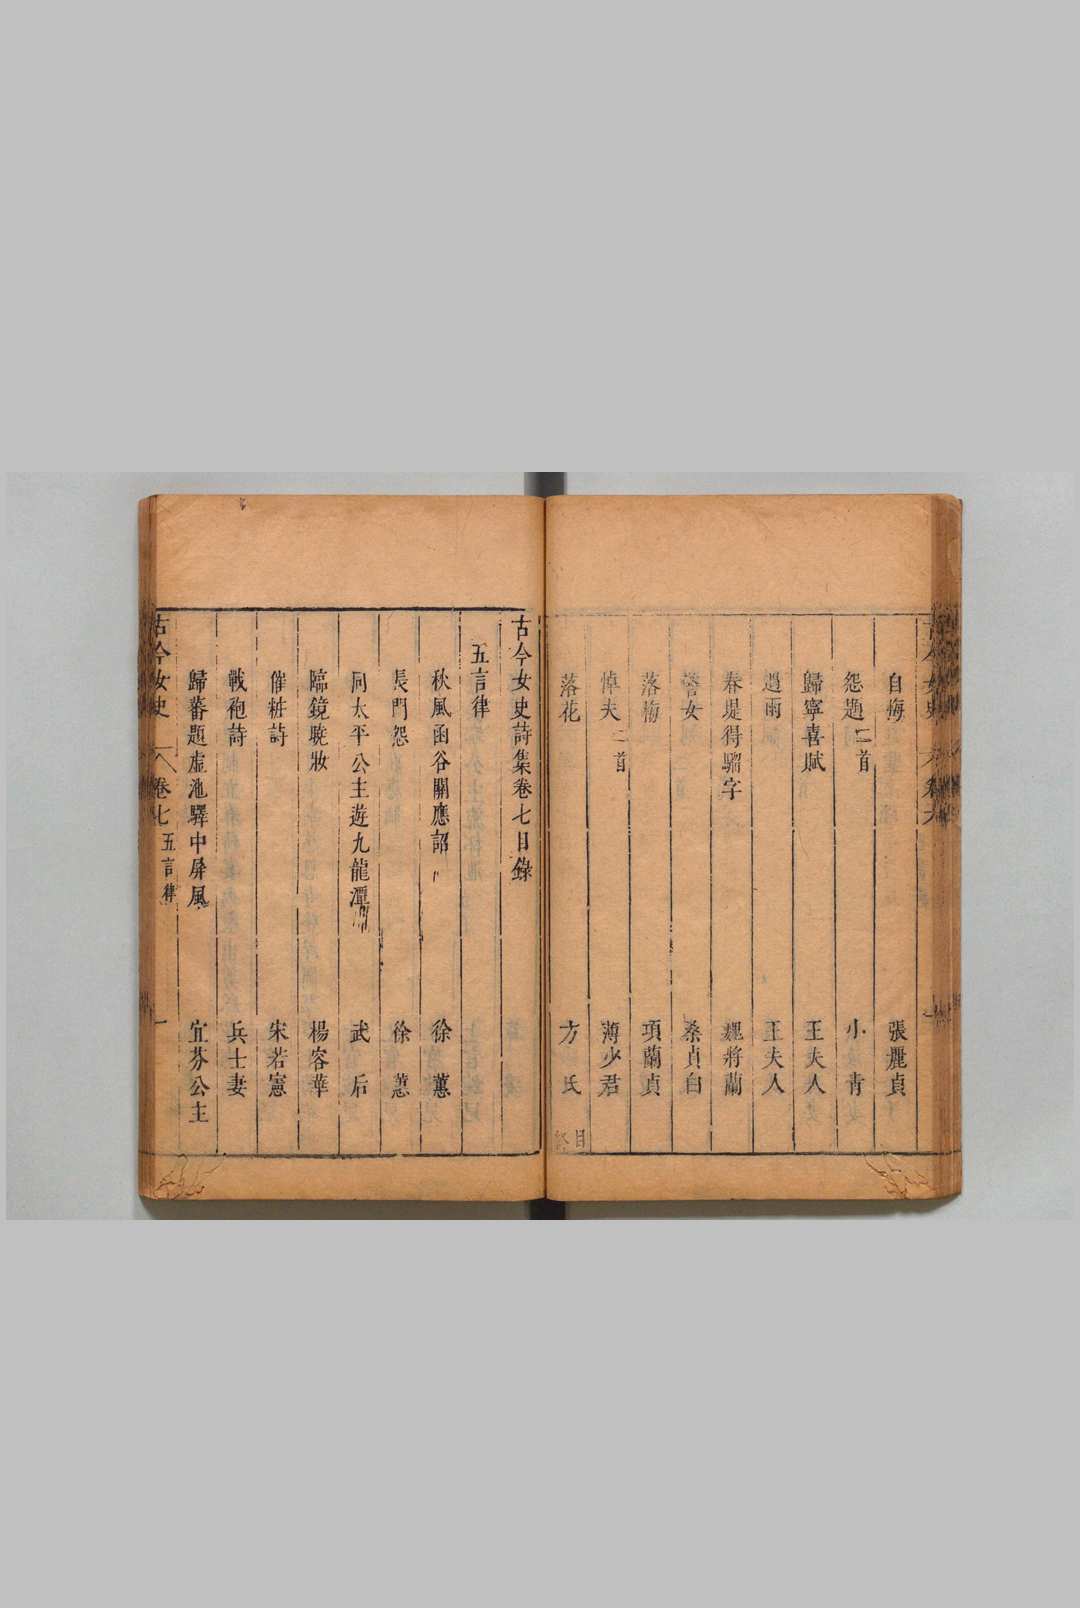 自悔 張麗貞
怨題二首 小青
歸寧喜賦 王夫人
遇雨 王夫人
春堤得騮字 魏將蘭
警女 桑貞白
落梅 項蘭貞
悼夫二首 薄少君
落花 方氏
目
古今女史詩集卷七目錄
五言律
秋風函谷關應詔 徐蕙
長門怨 徐蕙
同太平公主遊九龍潭 武后
臨鏡曉妝 楊容華
催粧詩 宋若憲
戰袍詩 兵士妻
歸蕃題虛池驛中屏風 宜芬公主
古今女史 卷七 五言律 一